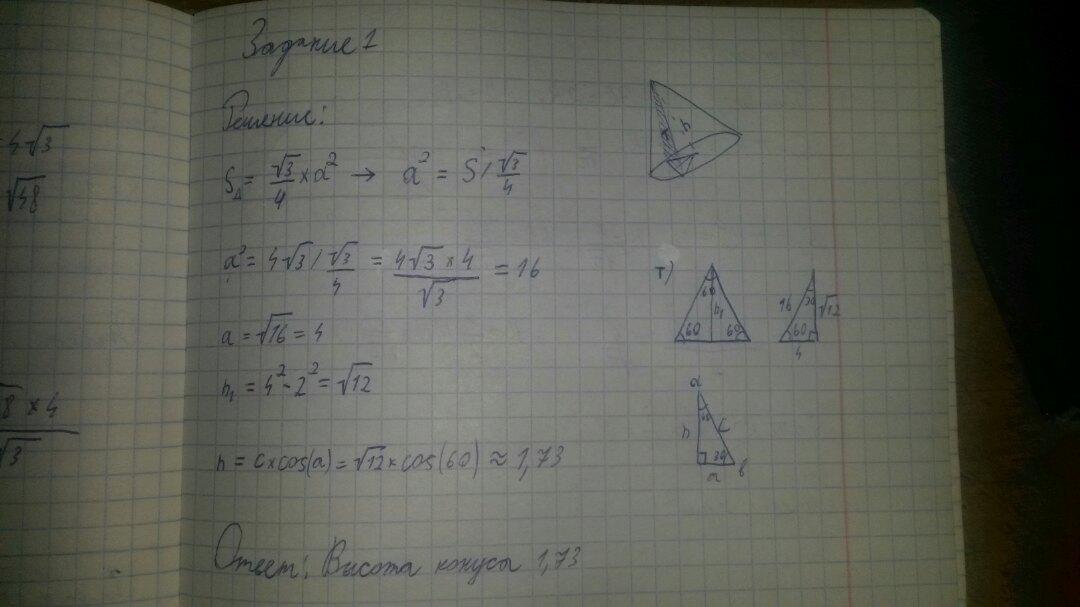 4√3
√48
√8 × 4
√3
Задание 1
Решение:
S△ = √3/4 × a² → a² = S / √3/4
a² = 4√3 / √3/4 = 4√3 × 4 / √3 = 16
a = √16 = 4
h₁ = 4² - 2² = √12
h = c × cos(a) = √12 × cos(60) ≈ 1,73
Ответ: Высота конусы 1,73
т)
60
h₁
60
60
16
30
√12
60
4
a
60
h
c
30
b